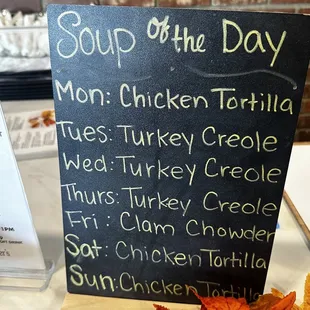 Soup of the Day
Mon: Chicken Tortilla
Tues: Turkey Creole
Wed: Turkey Creole
Thurs: Turkey Creole
Fri: Clam Chowder
Sat: Chicken Tortilla
Sun: Chicken Tortilla
PM